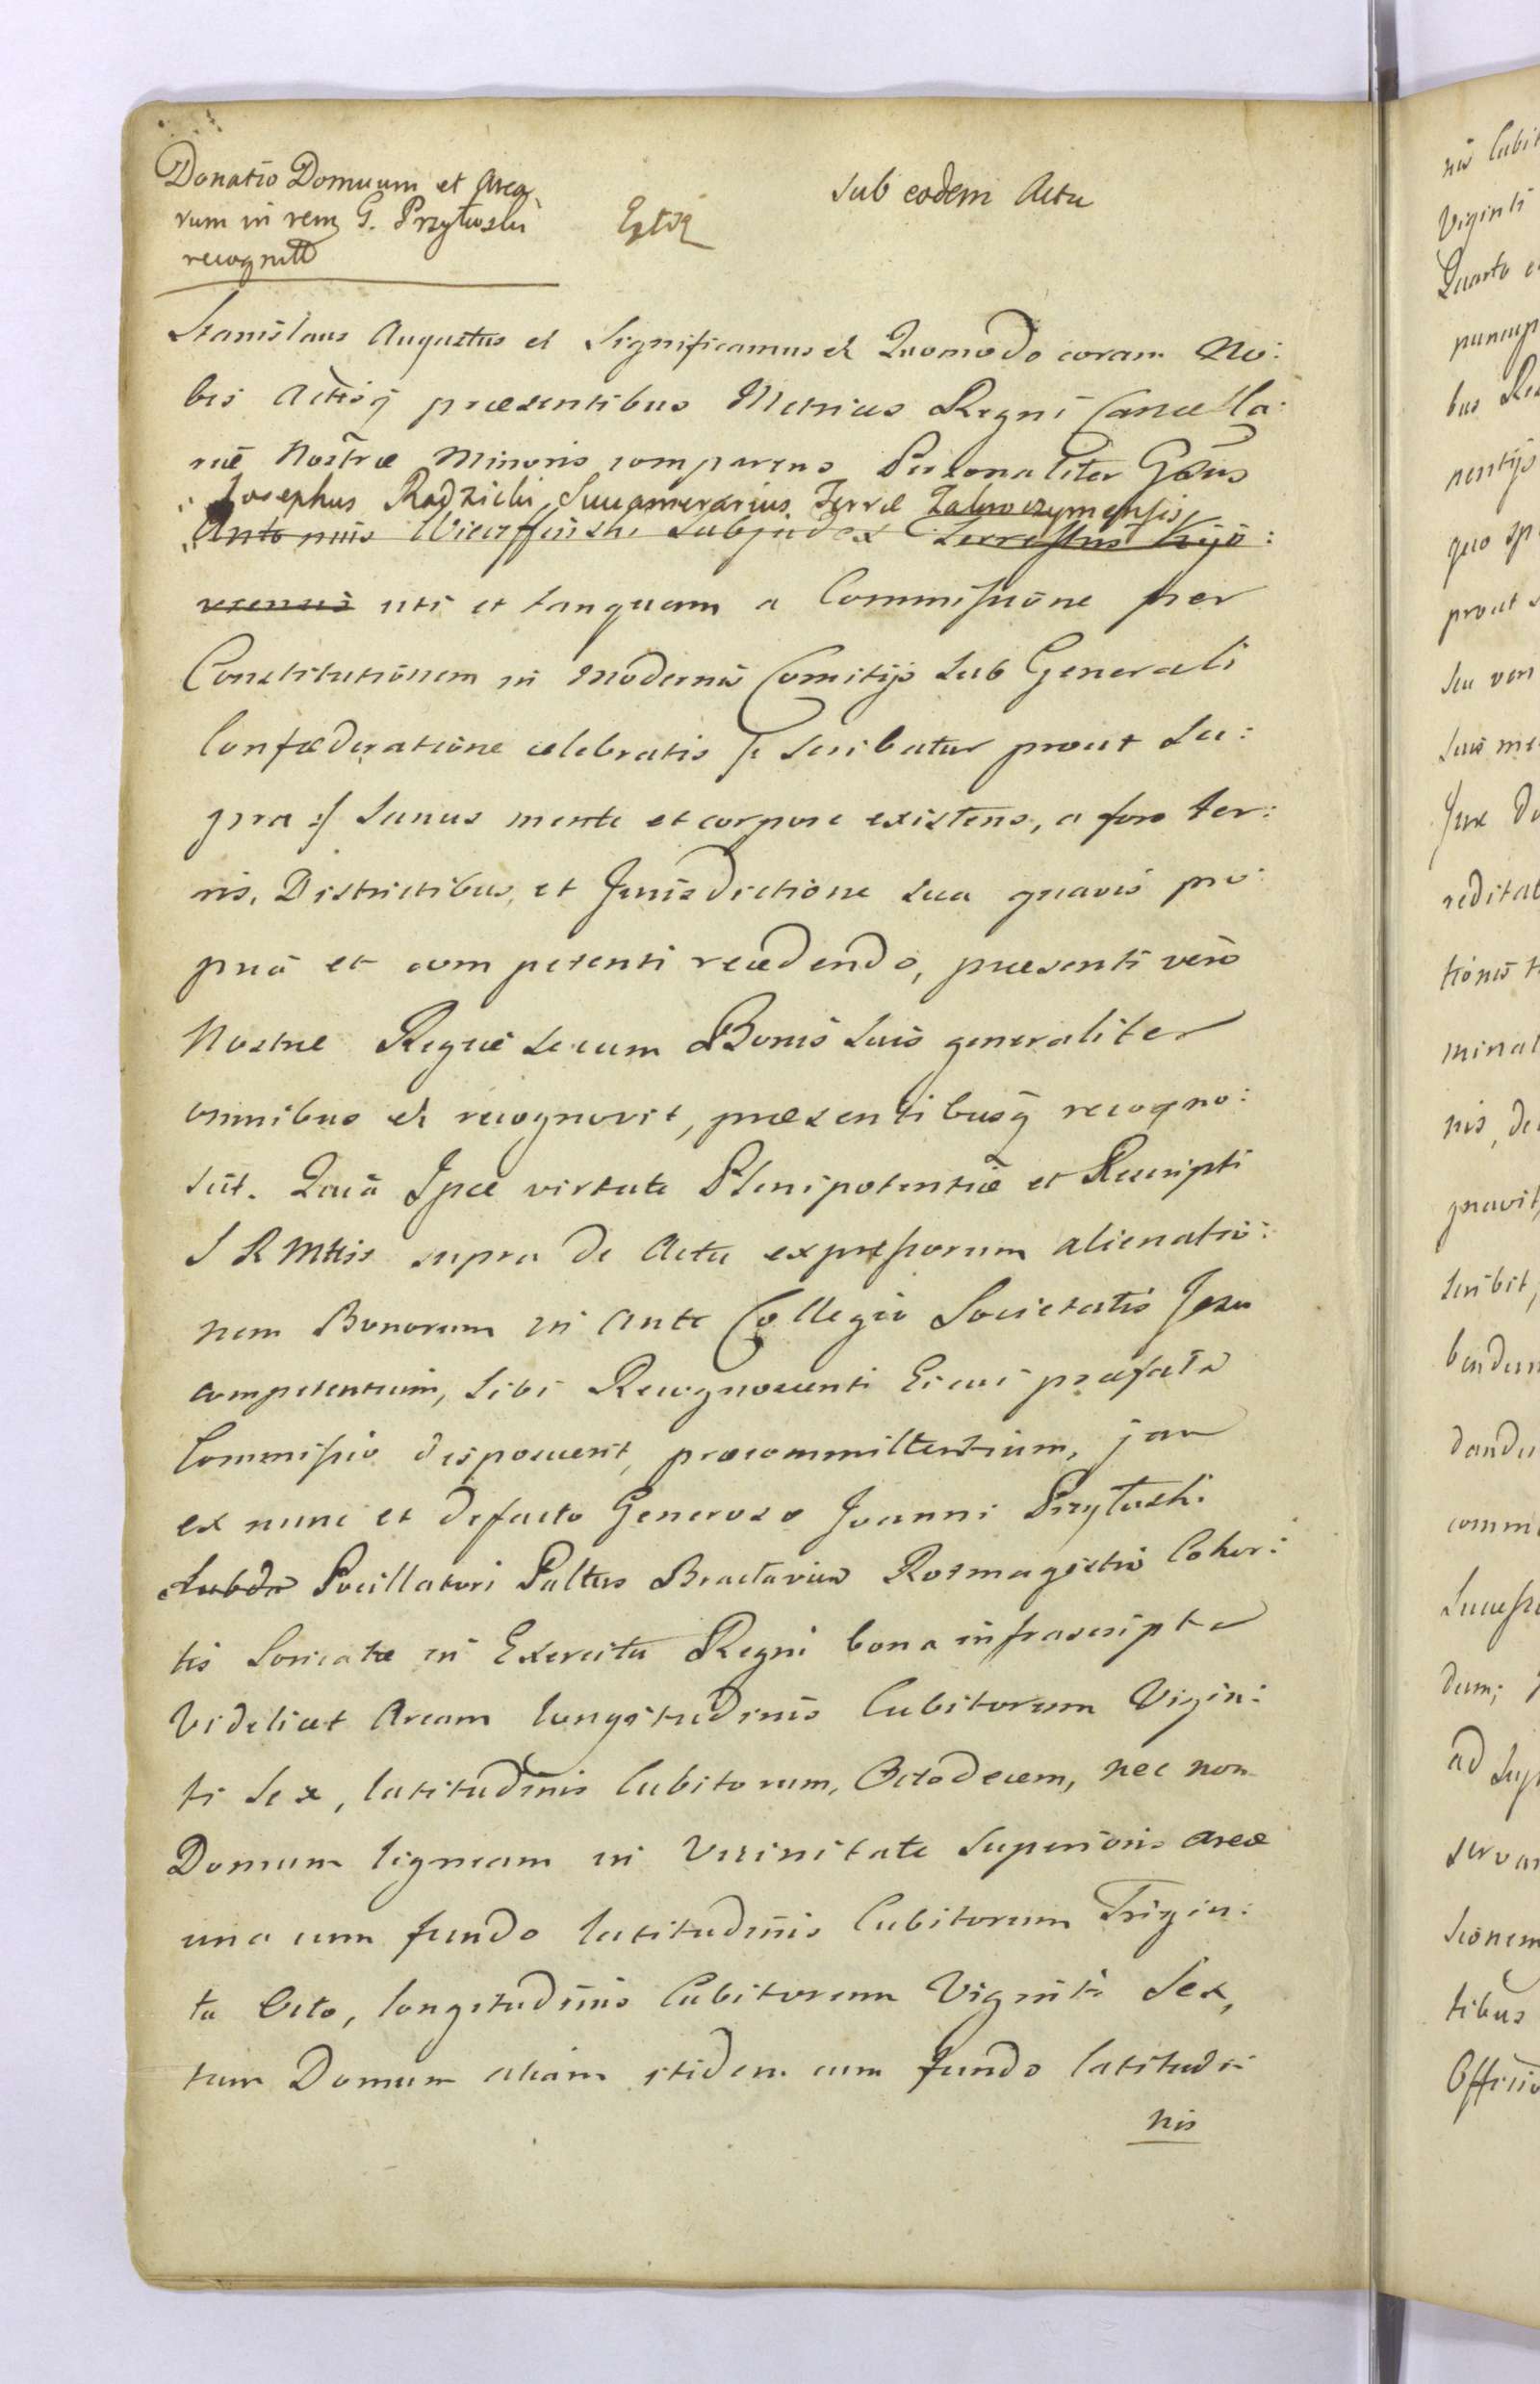 Donatio Domuum et Area
rum in rem G. Przyłuski
recognitt
Sub eodem Actu
Stanislaus Augustus et Significamus et Quomodo coram No:
bis Actisq præsentibus Metrices Regni Cancella:
riæ Nostræ Minoris comparens Personaliter Gnsus
Josephus Radzicki Succamerarius Terræ Zakroczymensis
Antonius Subjudex Terrestris Kijo:
viensis uti et tanquam a Commissione per
Constitutionem in modernis Comitijs sub Generali
Confæderatione celebratis /: Scribatur prout Su:
pra :/ Sanus mente et corpore existens, a foro ter:
ris, Districtibus, et Jurisdictione sua quavis pro
pria et competenti recedendo, præsenti vero
Nostræ Regiæ se cum Bonis suis generaliter
omnibus et recognovit, præsentibusq recogno:
scit. Quia Ipse virtute Plenipotentiæ et Rescripti
S R Mttis supra de Actu expressorum alienatio:
nem Bonorum in ante Collegio Societatis Jesu
competentium, sibi Recognoscenti Eicui præfata
Commissio disposuerit, præcommittentium, jam
ex nunc et defacto Generoso Joanni Przyłuski
Subda Pocillatori Palttus Braclaviæ Rotmagistro Cohor:
tis Loricatæ in Exercitu Regni bona infrascripta
Videlicet Aream longitudinis Cubitorum Vigin:
ti Sex, latitudinis Cubitorum, Octodecem, nec non
Domum ligneam in Vicinitate Superioris areæ
una cum fundo latitudinis Cubitorum Trigin:
ta Octo, longitudinis Cubitorum Viginti Sex,
tum Domum aliam itidem cum fundo latitudi
nis
nis Cubit
Viginti
Quarto
bus
nentijs
prout
Suis
Jure
reditat
tionis
minal
nis, de
scribit,
bendum
dandu
comm
dum;
ad Sup
servan
sionem
tibus
Officio